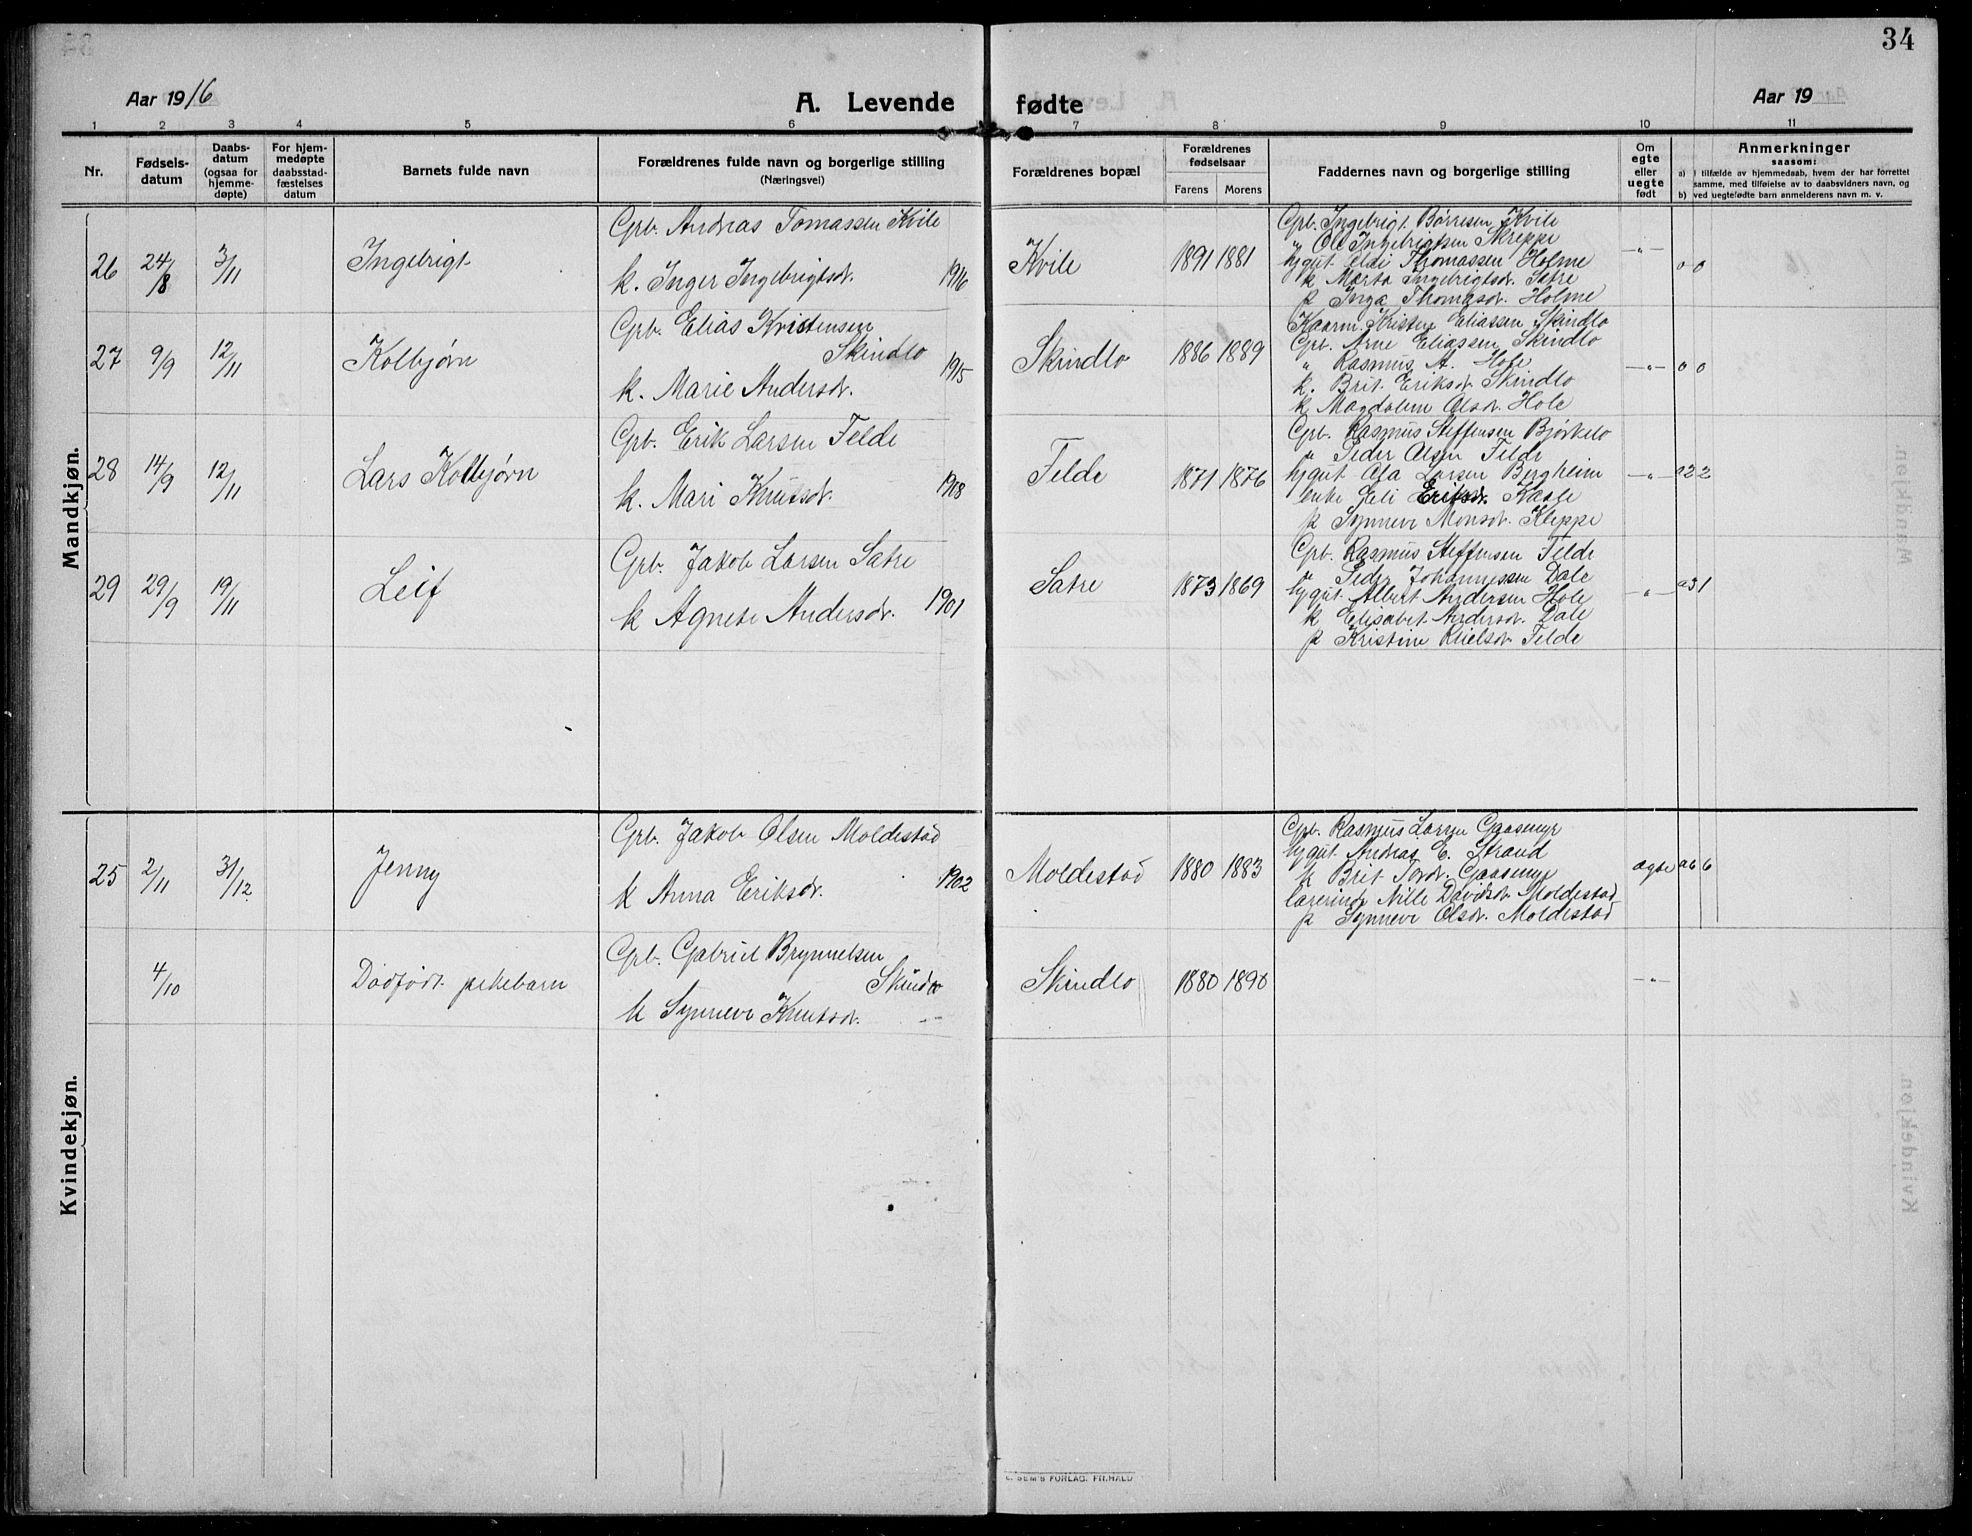 34
Aar 1916
A. Levende fødte
Aar 19
1 2 3 4 5 6 7 8 9 10 11
Nr.
Fødsels-
datum
Daabs-
datum
(ogsaa for
hjemme-
døpte)
For hjem-
medøpte
daabsstad-
fæstelses
datum
Barnets fulde navn
Forældrenes fulde navn og borgerlige stilling
(Næringsvei)
Forældrenes bopæl
Forældrenes
fødselsaar
Farens Morens
Faddernes navn og borgerlige stilling
Om
egte
eller
uegte
født
Anmerkninger
saasom:
a) I tilfælde av hjemmedaab, hvem der har forrettet
samme, med tilføielse av to daabsvidners navn, og
b) ved uegtefødte barn anmelderens navn m. v.
Mandkjøn.
26 24/8 3/11 Ingebrigt
Grb. Andreas Tomassen Kvile
k. Inger Ingebrigtsdr. 1916
Kvile 1891 1881
Grb. Ingebrigt Børresen Kvile
" Ole Ingebrigtsen Skreppe
ygut Eldi Thomassen Holme
k Marta Ingebrigtsdr. Satre
p Inga Thomasdr. Holme
—"— 0 0
27 9/9 12/11 Kolbjørn
Grb. Elias Kristensen
Skindlo
k. Marie Andersdr. 1915
Skindlo 1886 1889
Kaarm. Kristen Eliassen Skindlo
Grb. Arne Eliassen Skindlo
" Rasmus A. Hole
k. Brit Eriksdr. Skindlo
k Magdalene Olsdr. Hole
—"— 0 0
28 14/9 12/11 Lars Kolbjørn
Grb. Erik Larsen Felde
k. Mari Knutsdr. 1908
Felde 1871 1876
Grb. Rasmus Steffensen Bjørkelo
" Peder Olsen Felde
ygut Ola Larsen Bergheim
enke Eli Eriksdr. Kaale
k Synneve Monsdr. Kleppe
—"— a 2 2
29 29/9 19/11 Leif
Grb. Jakob Larsen Satre
k Agnete Andersdr. 1901
Satre 1873 1869
Grb. Rasmus Steffensen Felde
" Peder Johannessen Dale
ygut Albert Andersen Hole
k Elisabet Andersdr. Dale
p Kristine Nielsdr Felde
—"— a 3 1
Kvindekjøn.
25 2/11 31/12 Jenny
Grb. Jakob Olsen Moldestad
k Anna Eriksdr. 1902
Moldestad 1880 1883
Grb. Rasmus Larsen Gaasemyr
ygut Andreas E. Strand
k Brit Tordr. Gaasemyr
lærerinde Nille Davidsdr Moldestad
p Synneve Olsdr. Moldestad
ægte a 6 6
4/10 Dødfødt pikebarn
Grb. Gabriel Brynnelsen
Skindlo
k Synneve Knutsdr. —
Skindlo 1880 1890
—"—
SEM'S FORLAG. FR.HALD